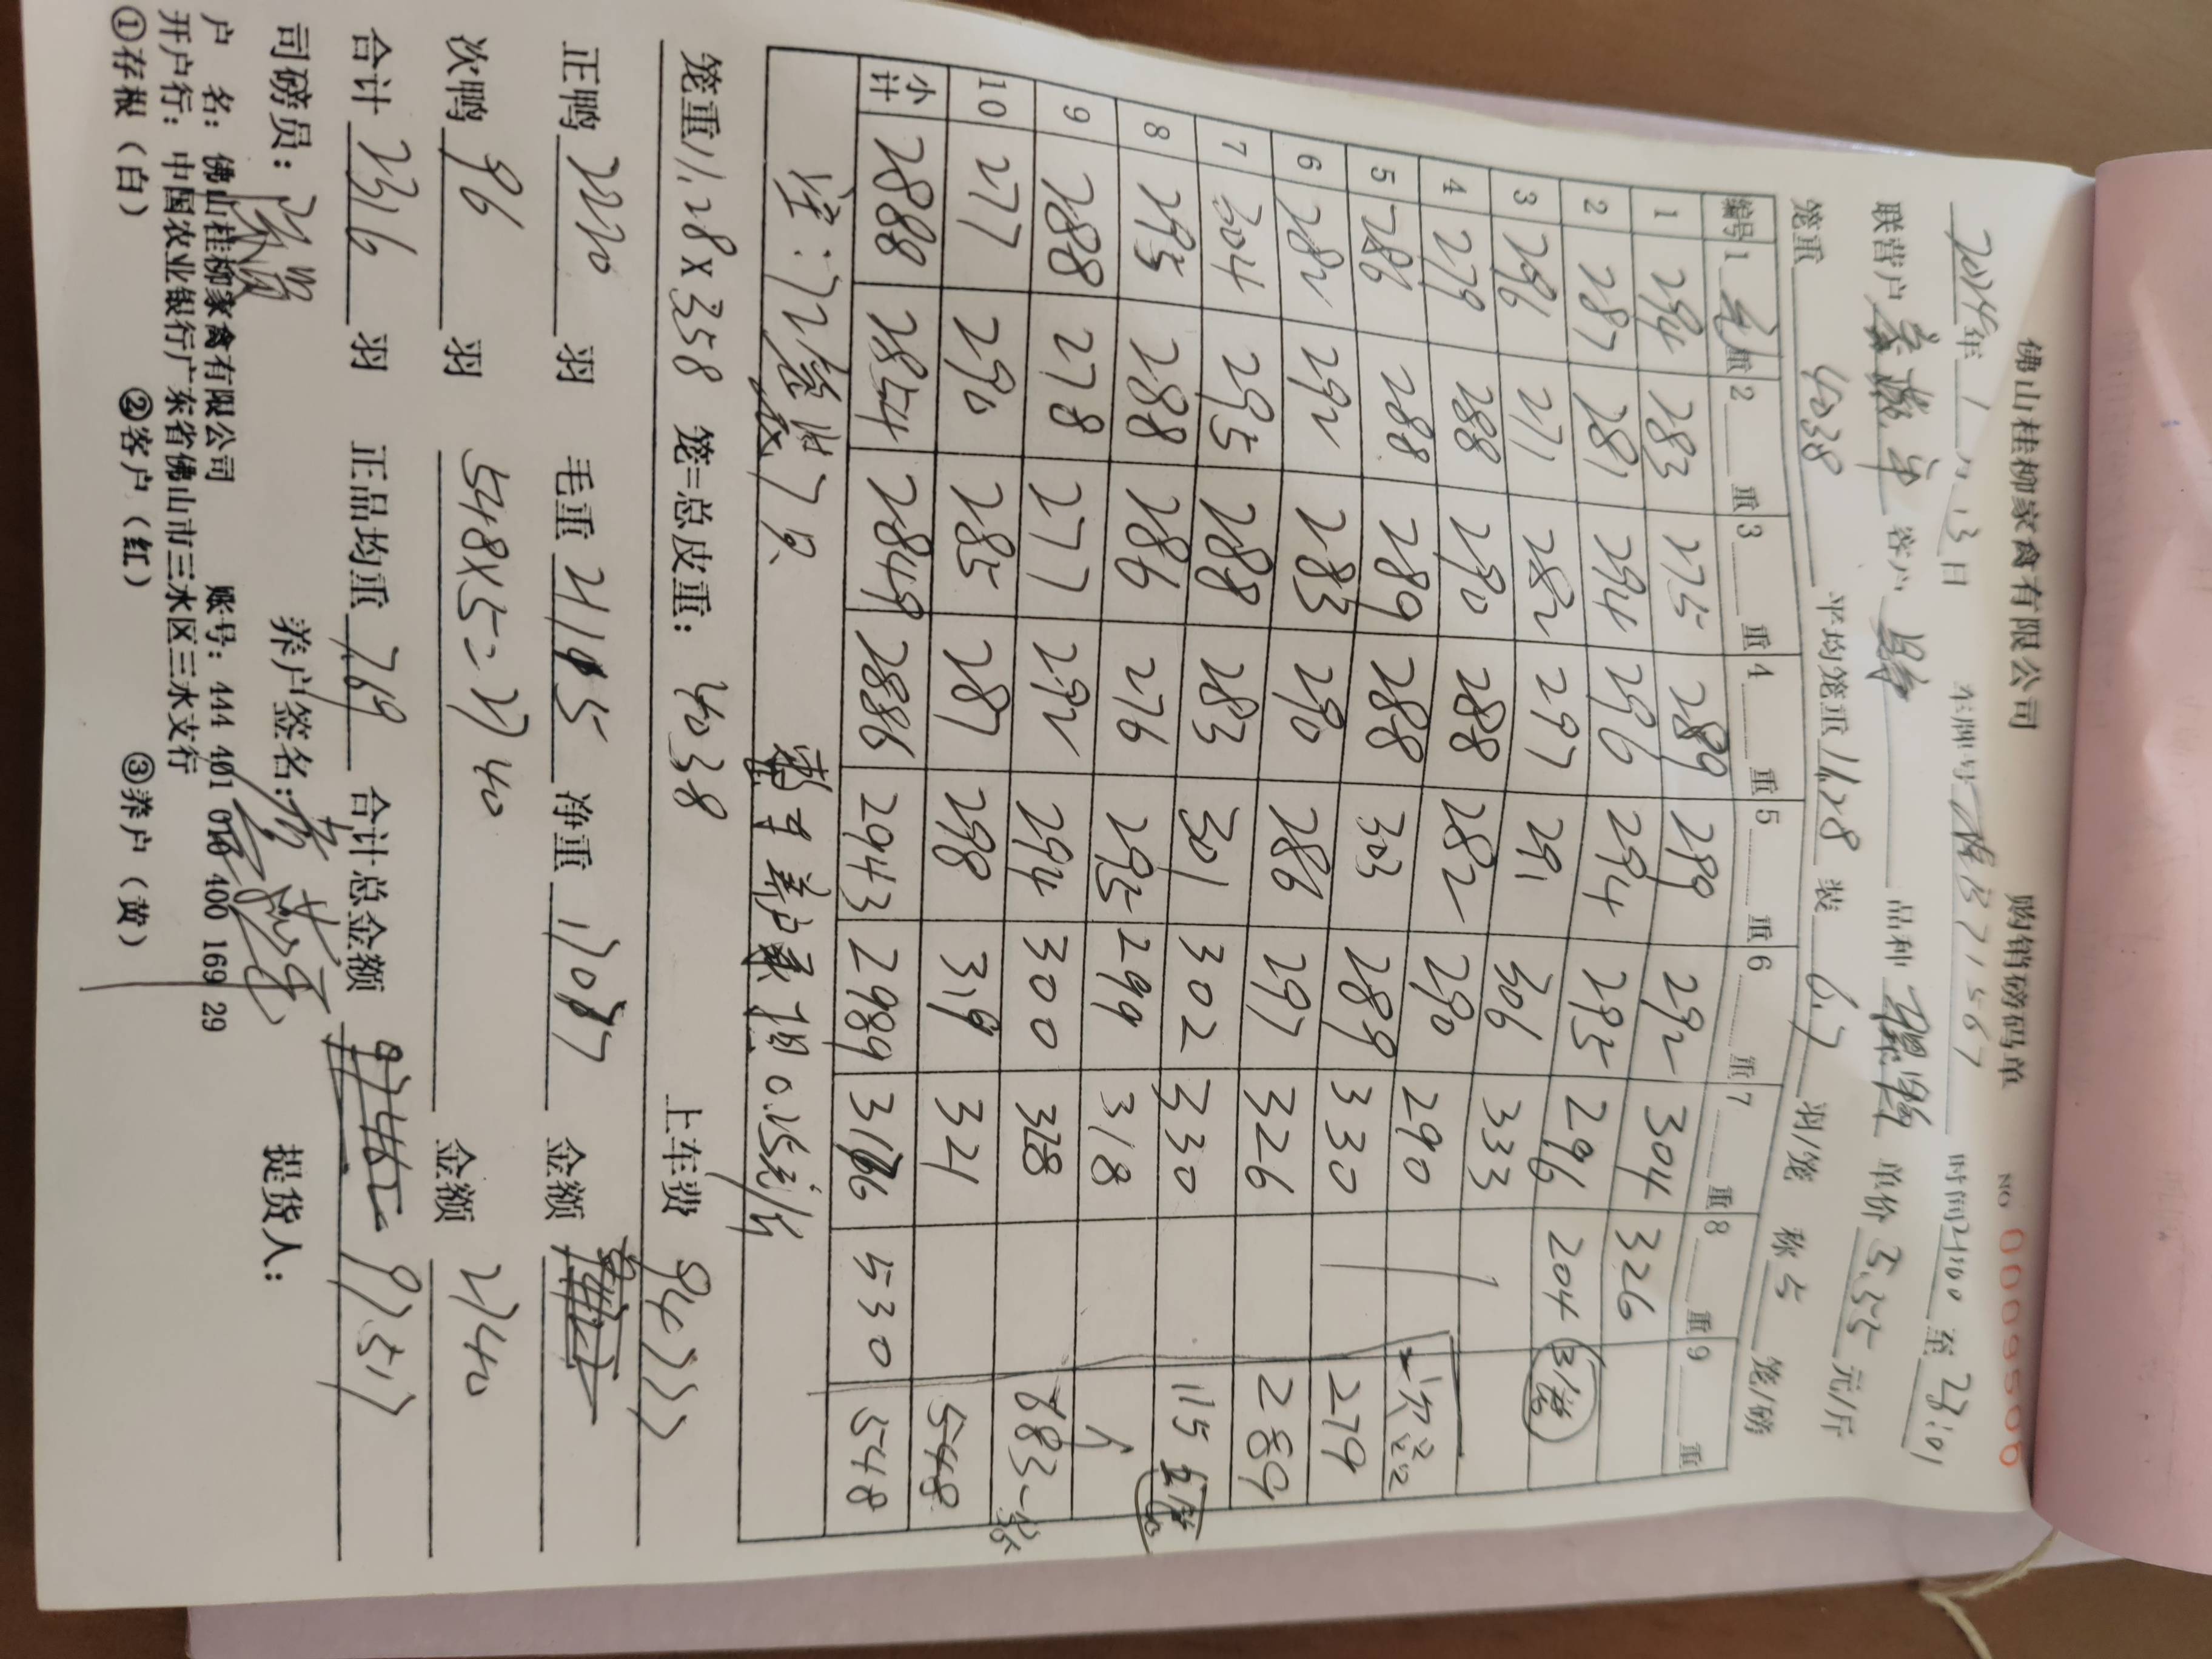 佛山桂柳家禽有限公司 购销磅码单 NO 0009506
2024年 1 月 13 日 车牌号 B71567 时间 21:00 至 23:01
联营户 客户 品种 单价 5.55 元/斤
笼重 4038 平均笼重 11.28 装 6.7 羽/笼 称 5 笼/磅
编号 1 毛重 2 重 3 重 4 重 5 重 6 重 7 重 8 重 9 重
1 294 283 275 289 289 292 304 326
2 287 281 294 296 294 295 296 204 3笼
3 296 271 282 297 291 306 333
4 279 288 290 288 282 290 290 次品
5 286 288 289 288 303 289 330 279
6 282 292 283 290 286 297 326 289
7 304 295 288 283 301 302 330 115
8 295 288 286 276 295 299 318
9 288 278 277 292 294 300 328 683
10 277 290 285 287 298 319 324 548
小计 2888 2854 2849 2886 2943 2989 3176 530 548
注:72 7只 养户 0.15元/斤
笼重 11.28 x 358 笼=总皮重: 4038 上车费 94777
正鸭 2220 羽 毛重 21115 净重 17077 金额
次鸭 96 羽 548x5=2740 金额 2740
合计 2316 羽 正品均重 7.69 合计总金额 97517
司磅员: 养户签名: 提货人:
户 名: 佛山桂柳家禽有限公司 账号: 444 401 010 400 169 29
开户行: 中国农业银行广东省佛山市三水区三水支行
①存根(白) ②客户(红) ③养户(黄)